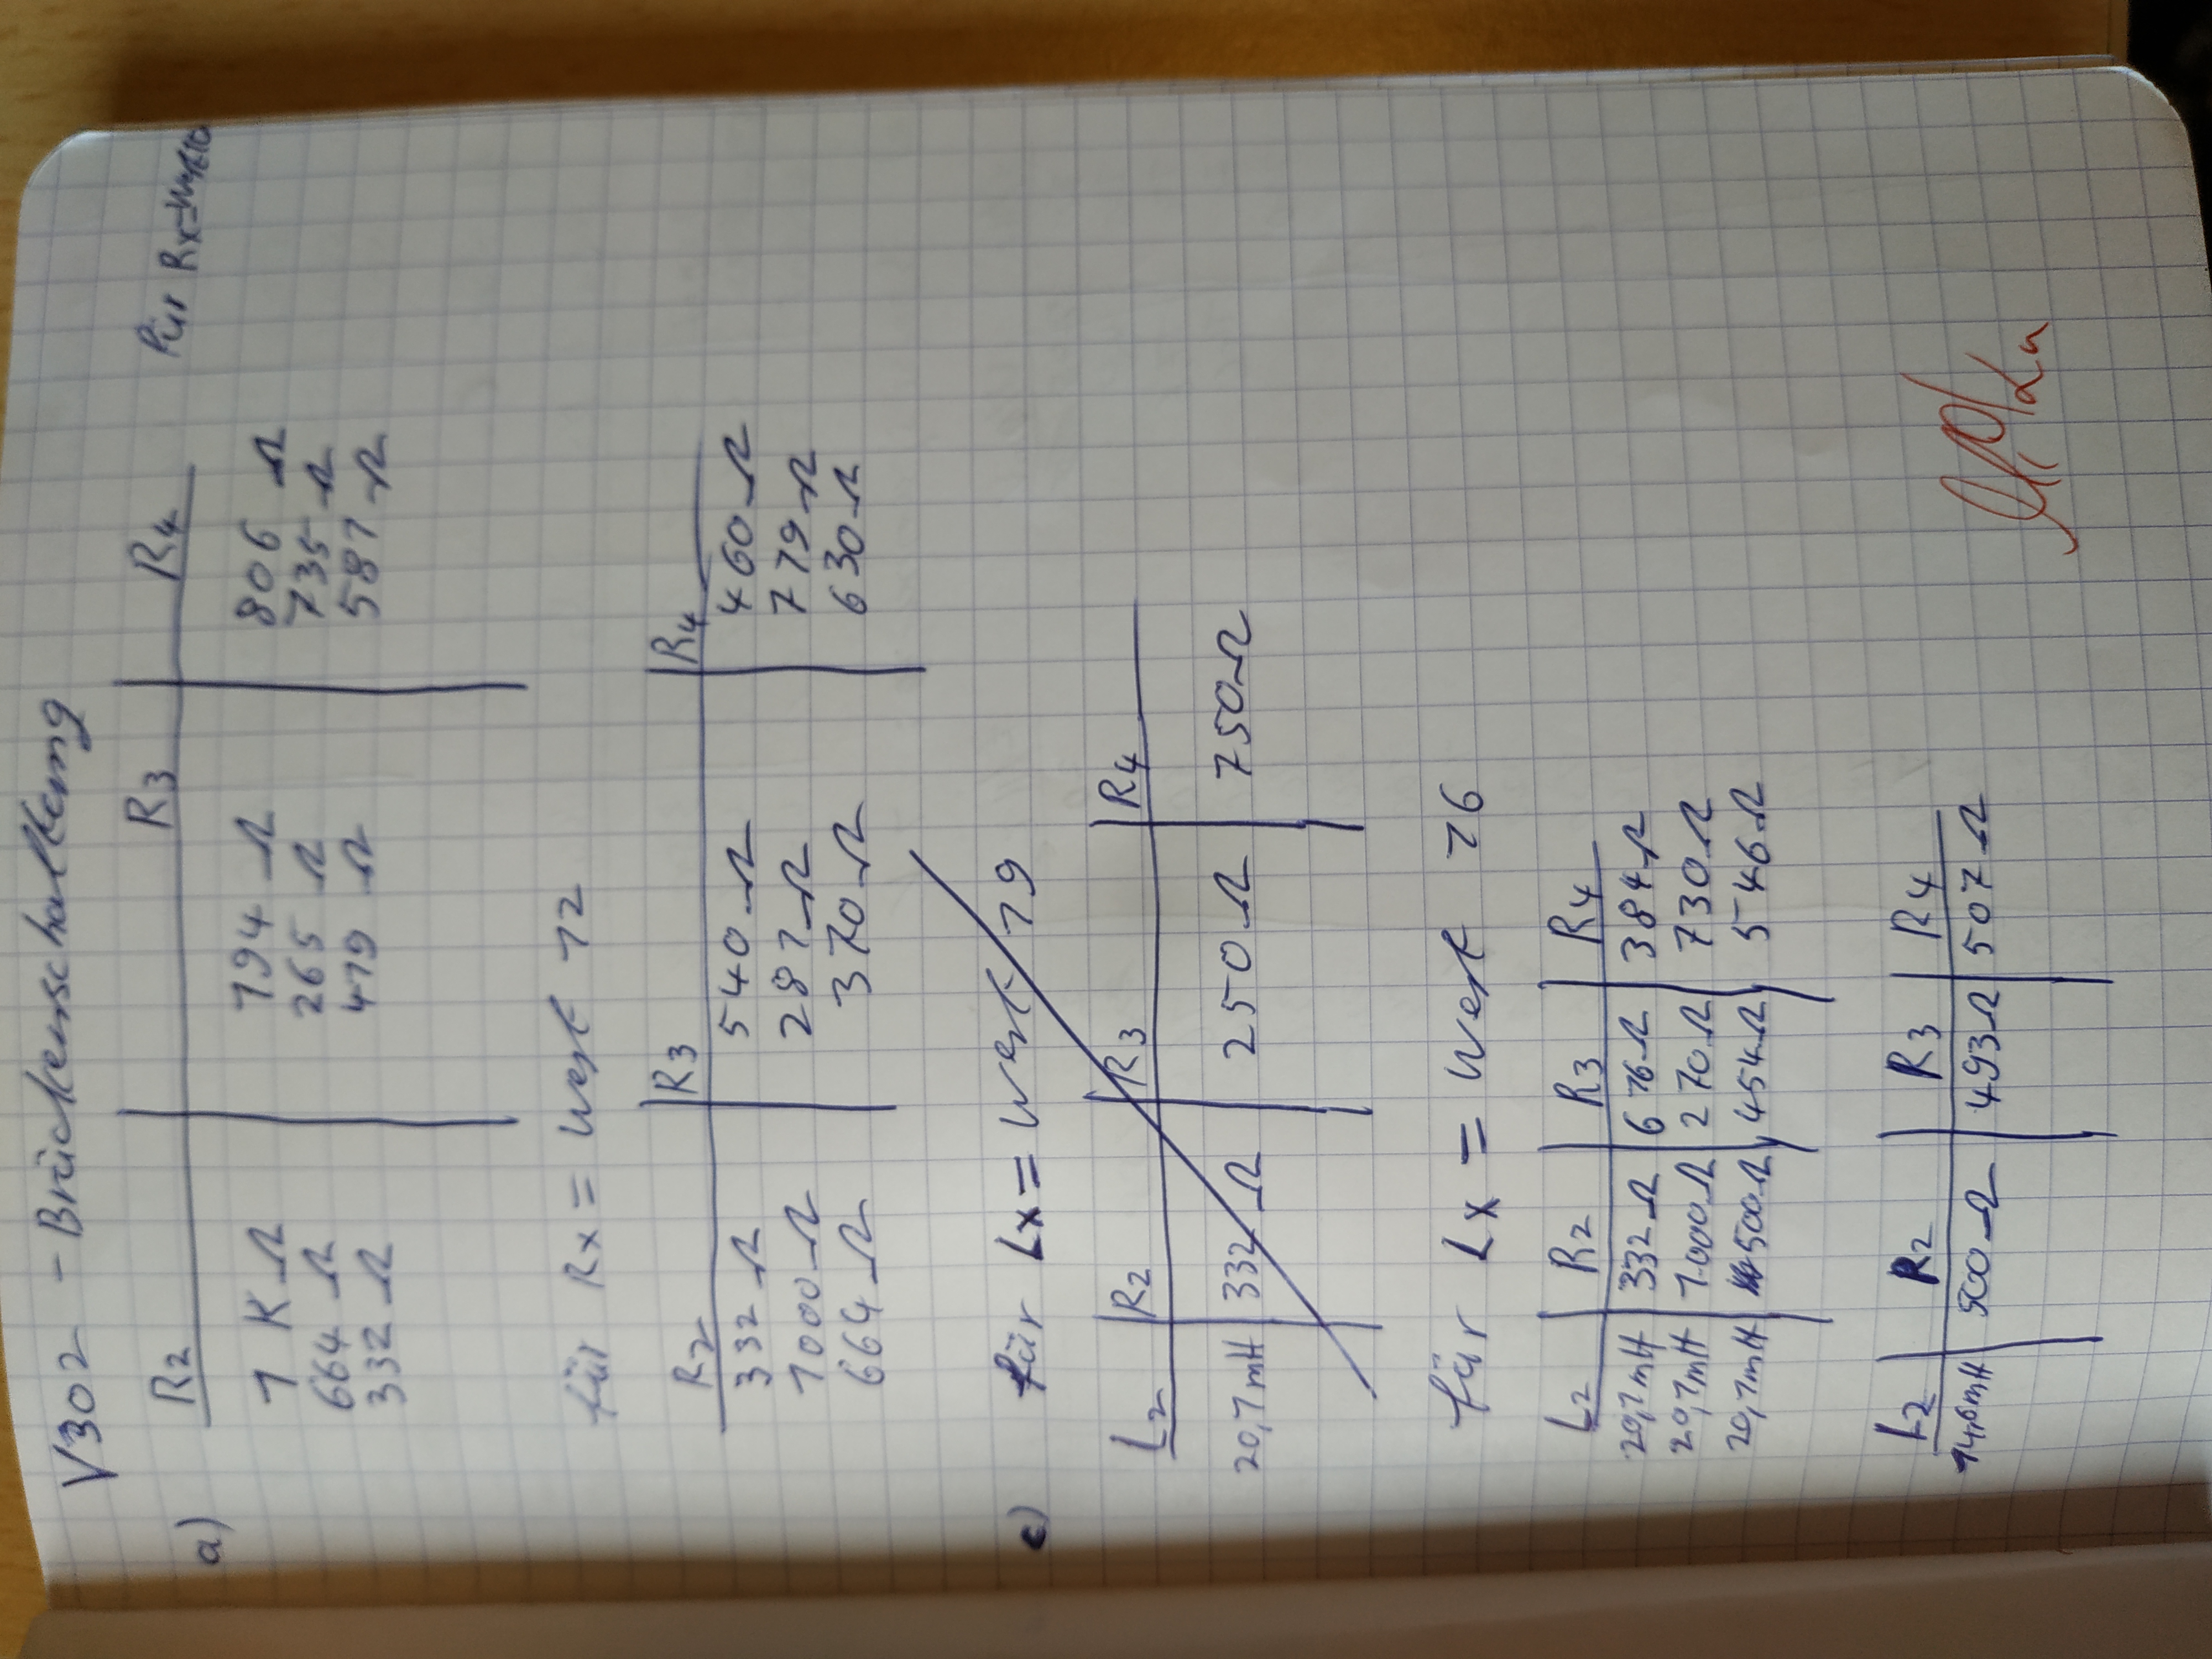 V302 - Brückenschaltung
a) R2 R3 R4 für Rx=Wert 10
1 KΩ 194 Ω 806 Ω
664 Ω 265 Ω 735 Ω
332 Ω 419 Ω 581 Ω
für Rx = Wert 12
R2 R3 R4
332 Ω 540 Ω 460 Ω
1000 Ω 281 Ω 719 Ω
664 Ω 370 Ω 630 Ω
c) für Lx = Wert 19
L2 R2 R3 R4
20,1 mH 332 Ω 250 Ω 750 Ω
für Lx = Wert 16
L2 R2 R3 R4
20,1 mH 332 Ω 616 Ω 384 Ω
20,1 mH 1000 Ω 270 Ω 730 Ω
20,1 mH 500 Ω 454 Ω 546 Ω
L2 R2 R3 R4
14,6 mH 500 Ω 493 Ω 507 Ω